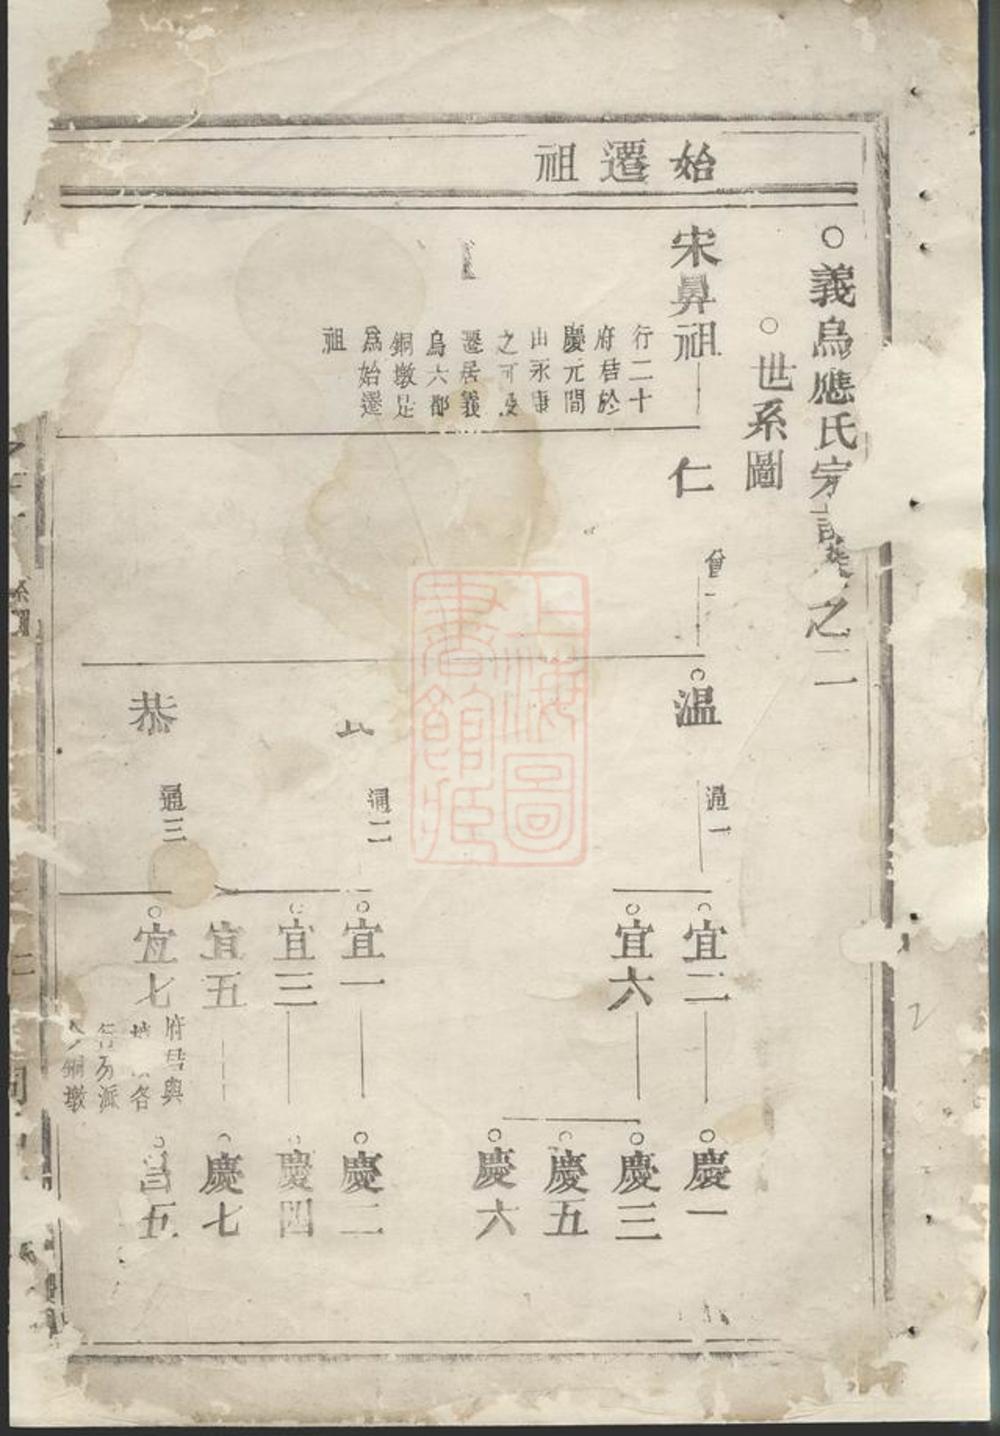 始遷祖
○義烏應氏宗譜卷之二
○世系圖
宋鼻祖
行二十
府祮於
慶元間
山永康
之可投
遷居義
烏六都
銅墩是
爲始遷
祖
仁
曾一
○溫
通一
通二
恭
通三
○宜二
○宜六
○宜一
○宜三
宜五
○宜七
府君與
各
行另派
今銅墩
○慶一
○慶三
○慶五
○慶六
○慶二
○慶四
○慶七
○昌五
上海圖
書館藏